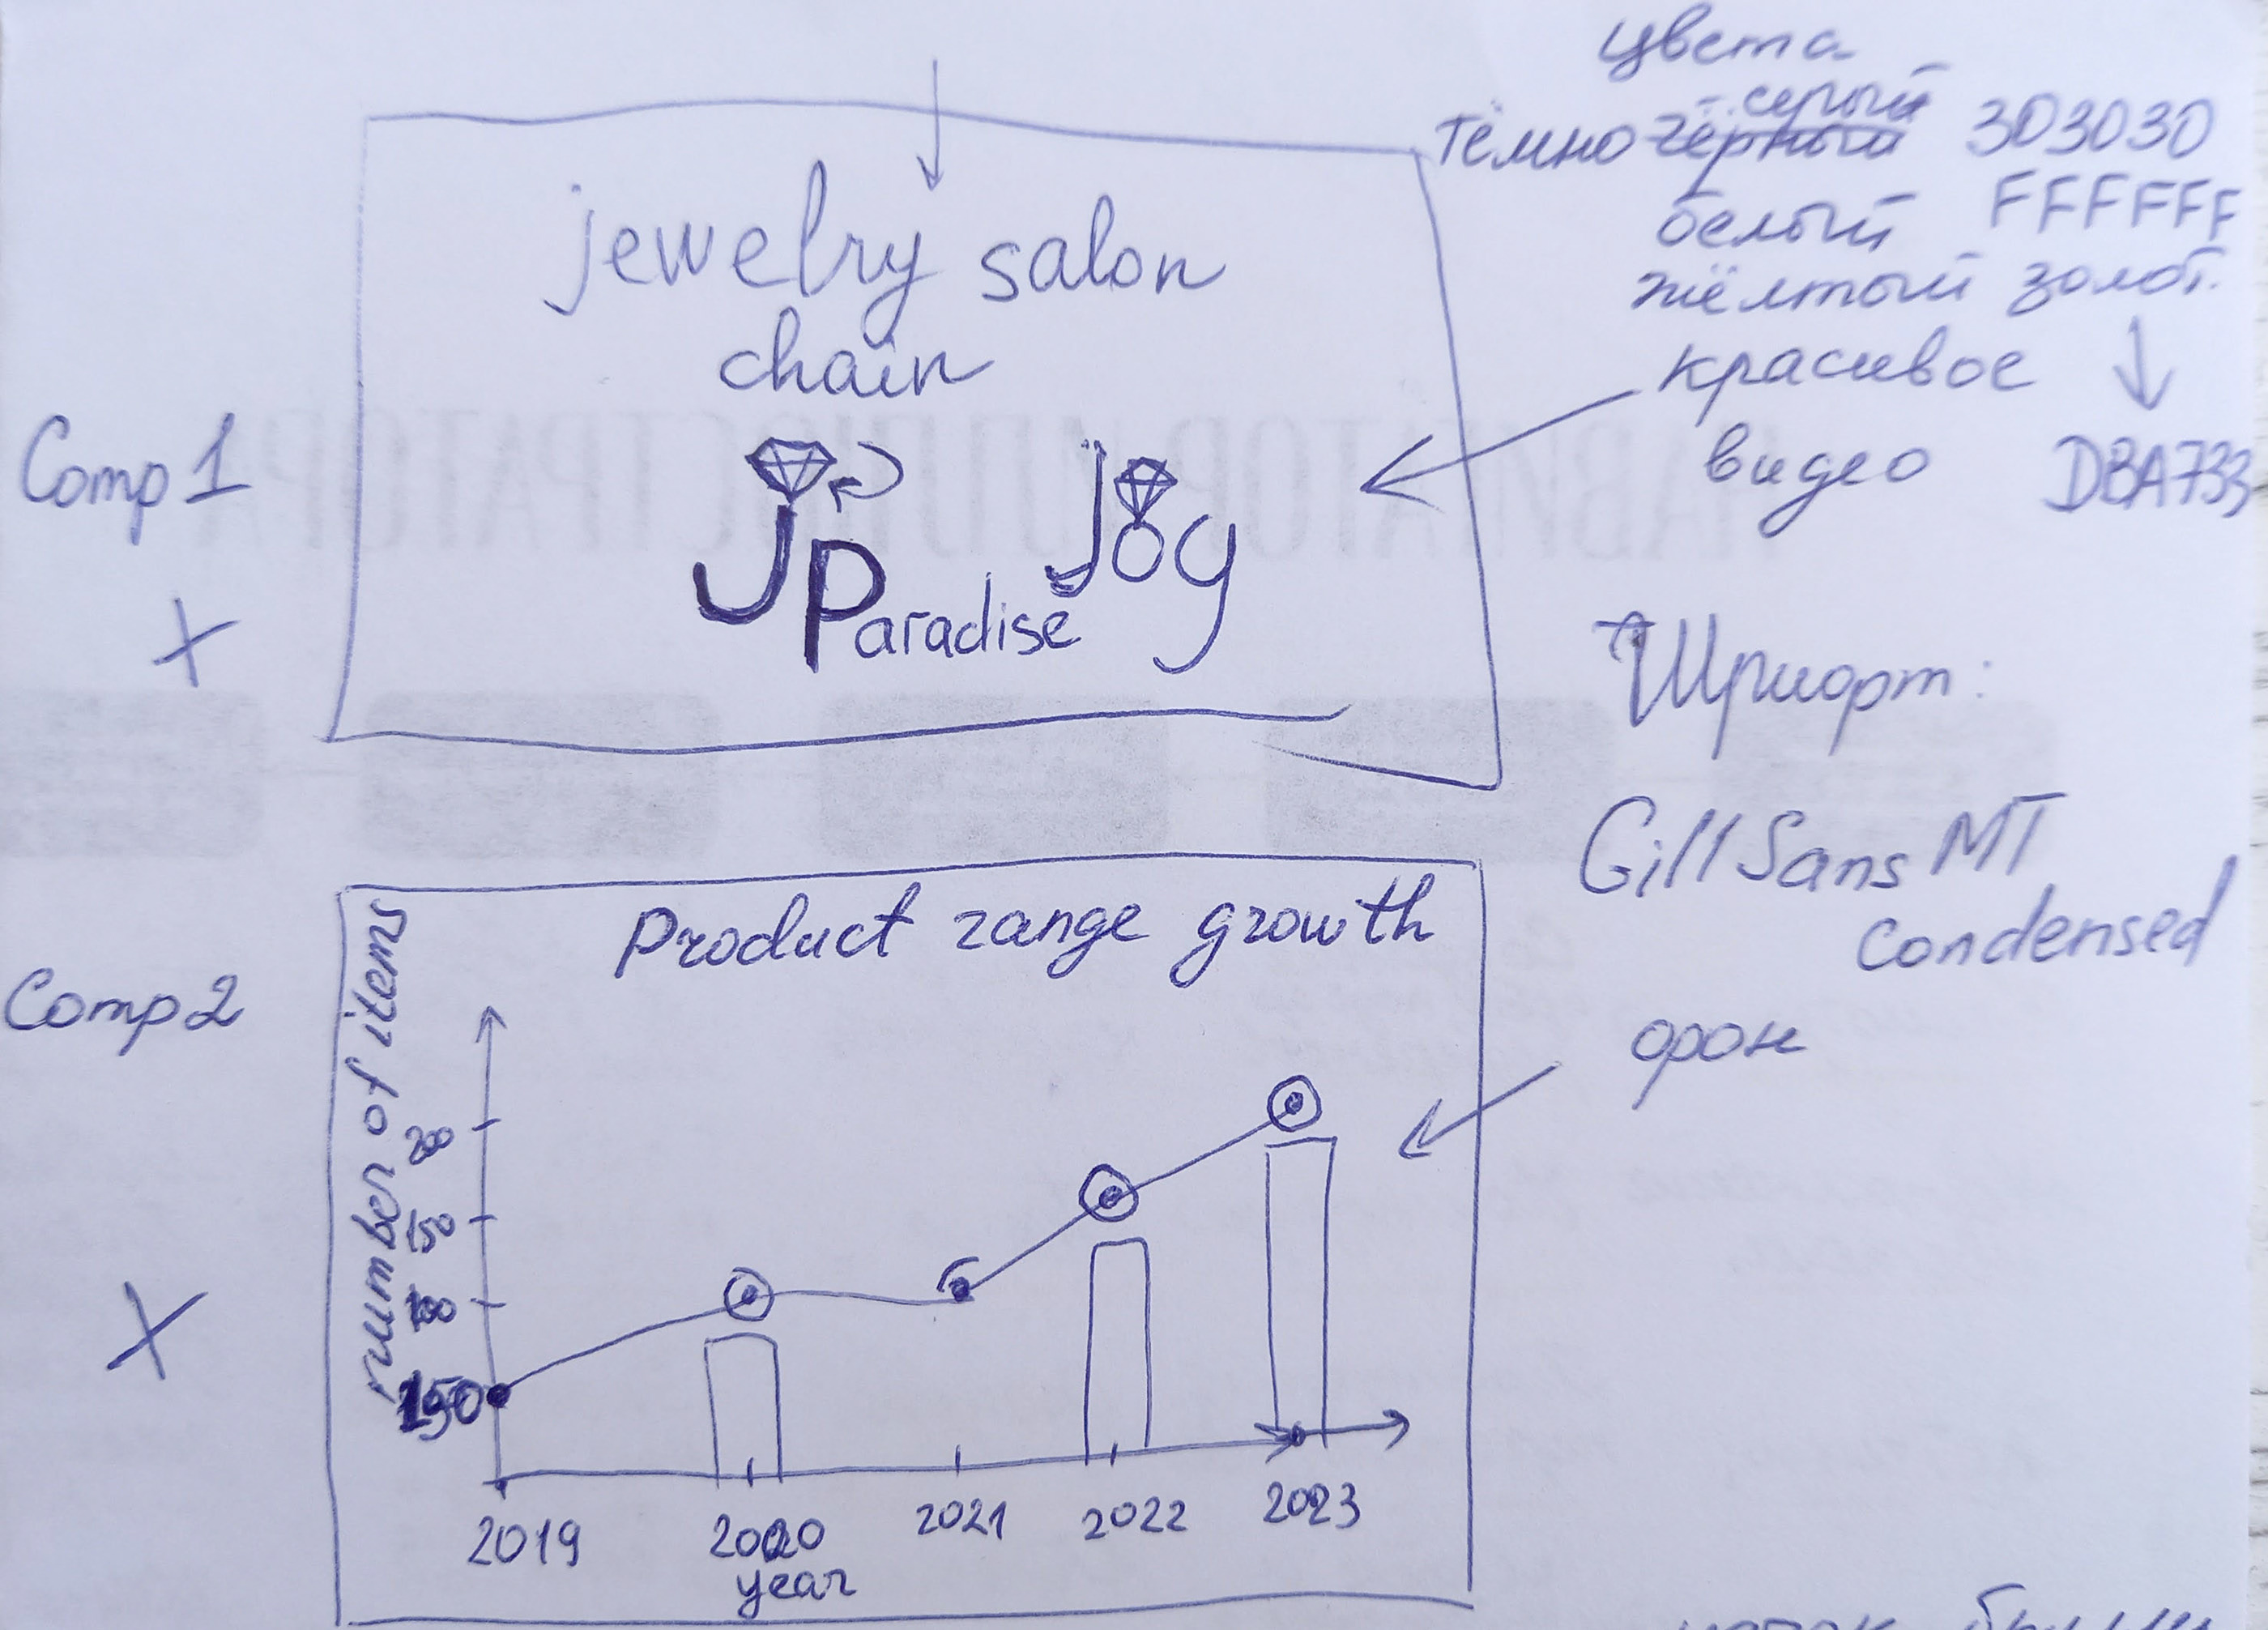 цвета
- серый
тёмно чёрный 303030
белый FFFFFF
жёлтый золот.
красивое
видео DBA733
jewelry salon
chain
Comp 1
J
Paradise
joy
Шрифт:
Gill Sans MT
Condensed
Comp 2
Product range growth
number of items
фон
200
150
150
2019
2020
2021
2022
2023
year